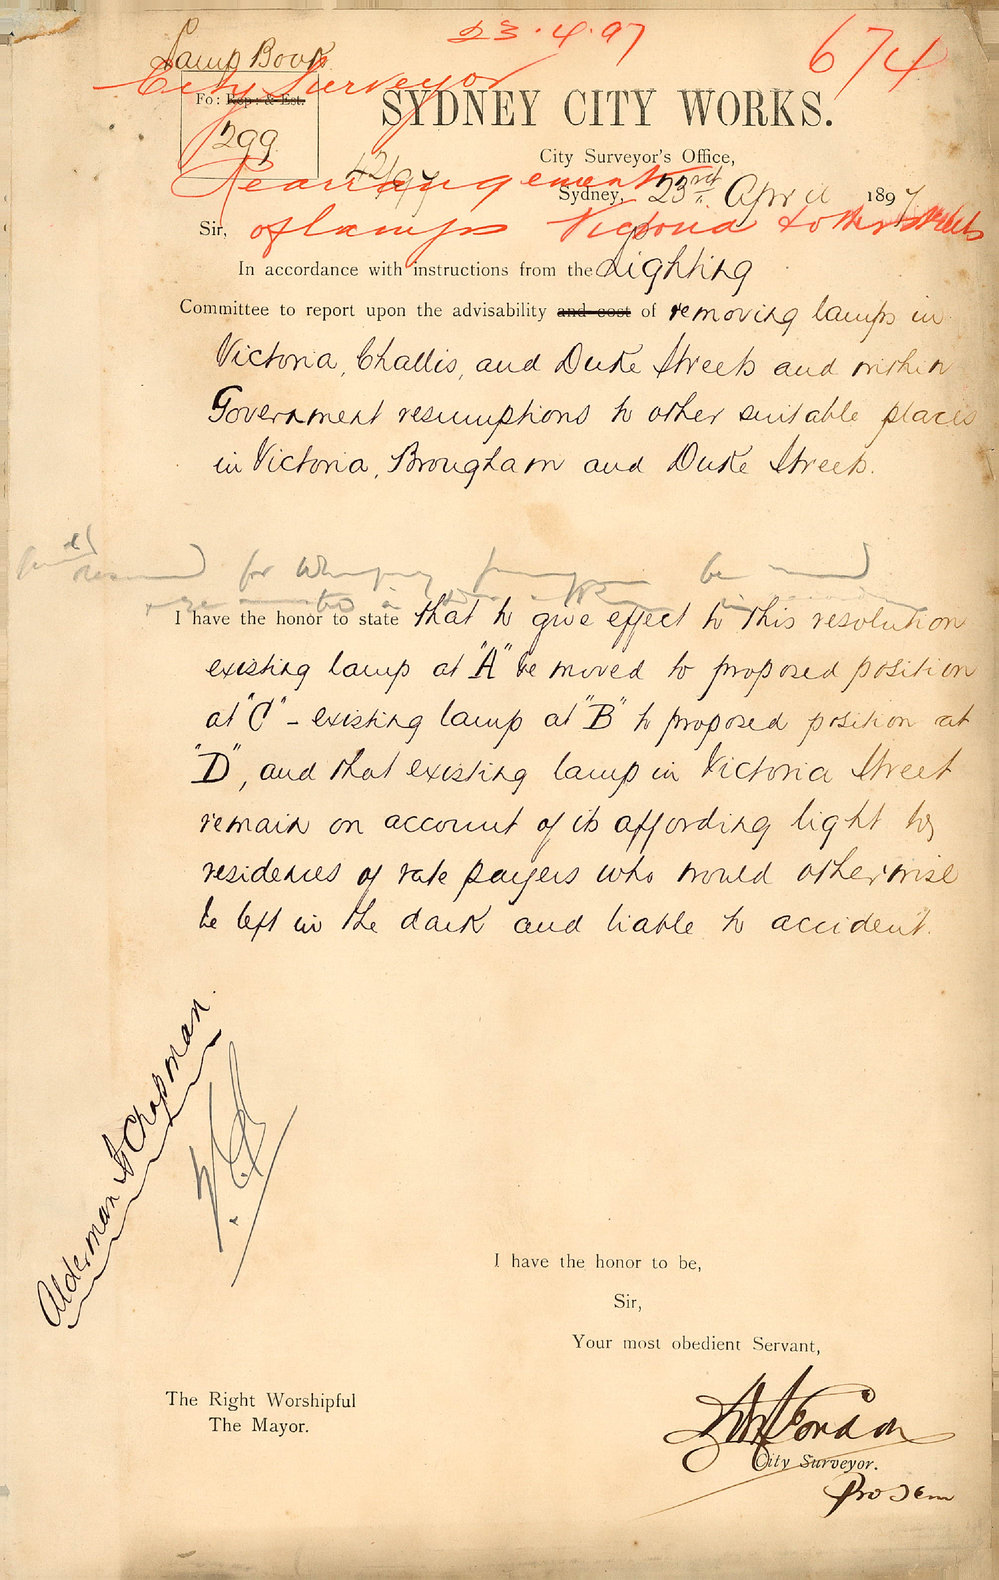 23.4.97
674
Lamp Book
City Surveyor
Fo: Rep: & Est.
299
SYDNEY CITY WORKS.
City Surveyor's Office,
42/97
Sydney, 23rd April 1897
Rearrangement
Sir, of lamps Victoria & other streets
In accordance with instructions from the Lighting
Committee to report upon the advisability and cost of removing lamps in
Victoria, Challis, and Duke Streets and within
Government resumptions to other suitable places
in Victoria, Brougham and Duke Streets.
for be
I have the honor to state that to give effect to this resolution
existing lamp at "A" be moved to proposed position
at "C" - existing lamp at "B" to proposed position at
"D", and that existing lamp in Victoria Street
remain on account of its affording light to
residences of rate payers who would otherwise
be left in the dark and liable to accident.
Alderman Chapman
I have the honor to be,
Sir,
Your most obedient Servant,
The Right Worshipful
The Mayor.
City Surveyor.
Pro Tem